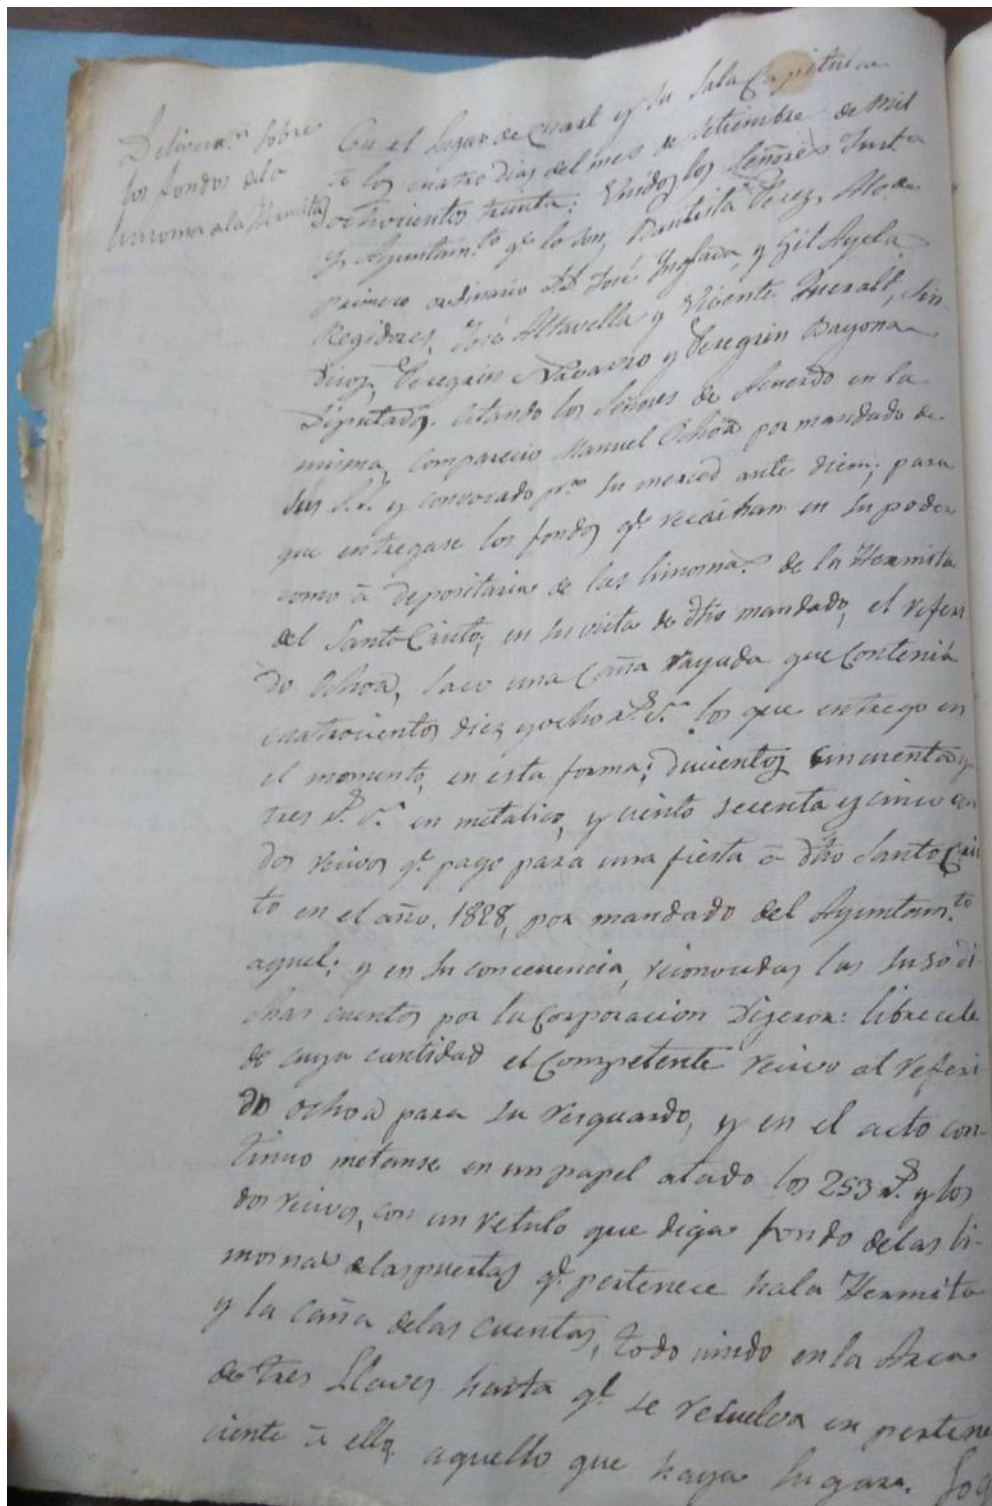 Deliveran. sobre
los fondos de la
limosna a la Hermita
En el Lugar de Cuart y su Sala Capitular
a los cuatro dias del mes de Setiembre de Mil
ochocientos treinta: Unidos los Señores Just.a
y Ayuntam.to q.e lo son, Bautista Perez, Alc.e
primero ordinario José Inglada, y Gil Ayela
Regidores, José Altavella y Vicente Queralt, Sin-
dicos, Peregrin Navarro y Peregrin Bayona
Diputados. estando los Señores de Acuerdo en la
misma, comparecio Manuel Ochoa por mandado de
sus S.S. y convocado p.r su merced ante diem; para
que entregase los fondos q.e recaihan en su poder
como á depositario de las limosnas de la Hermita
del Santo Cristo; en su vista de dho mandado, el referi
do Ochoa, saco una Caña rayada que contenia
cuatrocientos diez y ocho r.s v.n los que entrego en
el momento, en esta forma; ducientos cincuenta y
tres r.s v.n en metalico, y ciento secenta y cinco en
dos recivos q.e pago para una fiesta á dho Santo Cris
to en el año, 1828, por mandado del Ayuntam.to
aquel; y en su concecuencia, reconocidas las suso di-
chas cuentas por la Corporacion Dijeron: librecele
de cuya cantidad el Competente recivo al referi
do Ochoa para su resguardo, y en el acto con-
tinuo metanse en un papel atado los 253 r.s y los
dos recivos, con un retulo que diga fondo de las li-
mosnas de las puertas q.e pertenece hala Hermita
y la Caña delas cuentas, todo unido en la Arca
de tres Llaves hasta q.e se resuelva en pertene
ciente á ello aquello que haya lugar.